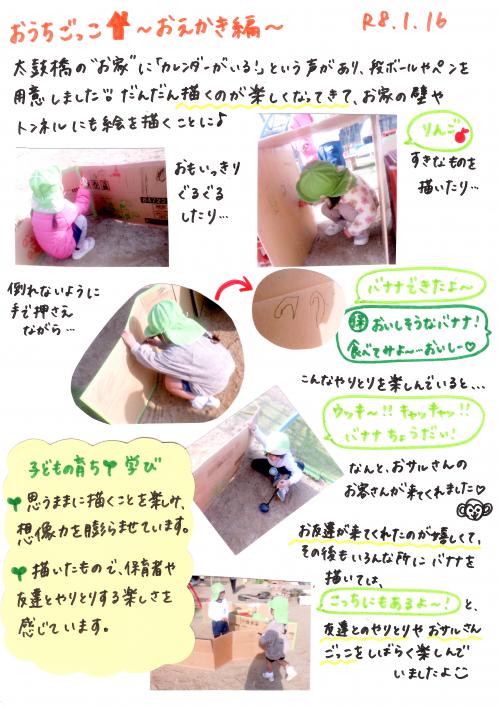 おうちごっこ ～おえかき編～
R8.1.16
太鼓橋の"お家"に「カレンダーがいる！」という声があり、段ボールやペンを
用意しました！！だんだん描くのが楽しくなってきて、お家の壁や
トンネルにも絵を描くことに♪
りんご
すきなものを
描いたり…
おもいっきり
ぐるぐる
したり…
倒れないように
手で押さえ
ながら…
バナナできたよ～
保 おいしそうなバナナ！
食べてみよ～…おいしー♡
こんなやりとりを楽しんでいると...
ウッキ～!! キャッキャッ!!
バナナちょうだい！
なんと、おサルさんの
お客さんが来てくれました♡
お友達が来てくれたのが嬉しくて、
その後もいろんな所にバナナを
描いては、
こっちにもあるよ～！ と、
友達とのやりとりやおサルさん
ごっこをしばらく楽しんで
いましたよ
子どもの育ち 学び
思うままに描くことを楽しみ、
想像力を膨らませています。
描いたもので、保育者や
友達とやりとりする楽しさを
感じています。